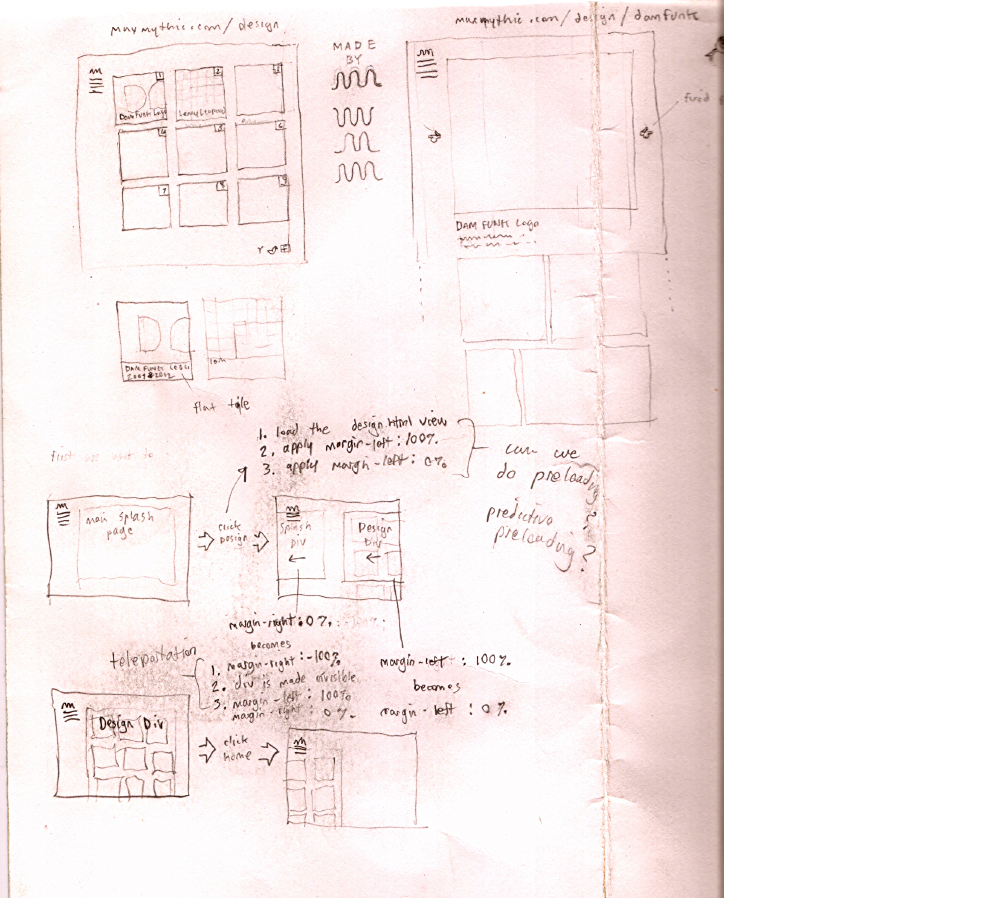 maxmythic.com/design
maxmythic.com/design/damfunk
MADE
BY
1
2
3
Dam Funk Logo
4
5
6
7
8
9
DAM FUNK Logo
fixed
DAM FUNK LOGO
flat tile
1. load the design.html view
2. apply margin-left: 100%
3. apply margin-left: 0%
can we
do preloading?
predictive
preloading?
first we want to
main splash
page
click
design
Splash
Div
Design
Div
margin-right: 0%
becomes
teleportation
1. margin-right: -100%
2. div is made invisible
3. margin-left: 100%
margin-right: 0%
margin-left: 100%
becomes
margin-left: 0%
Design Div
click
home